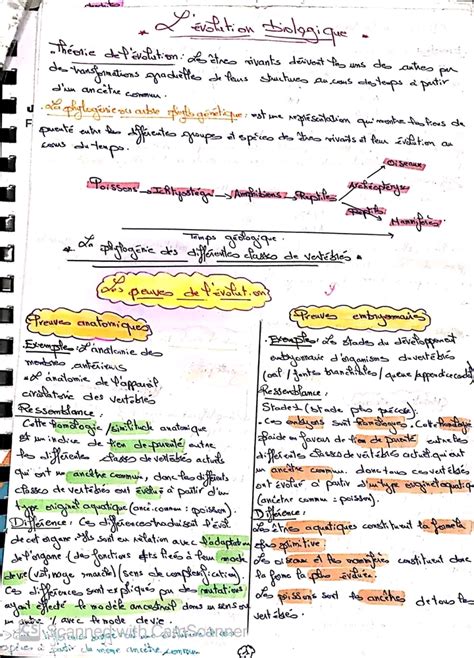 L'évolution biologique.
Théorie de l'évolution : Les êtres vivants dérivent les uns des autres par
des transformations graduelles de leurs structures au cours des temps à partir
d'un ancêtre commun.
La phylogénie ou arbre phylogénétique : est une représentation qui montre les liens de
parenté entre les différents groupes et espèces des êtres vivants et leur évolution au
cours du temps.
Oiseaux
Archéoptéryx
Poissons Ichtyostéga Amphibiens Reptiles
Reptiles
Mammifères
Temps géologique.
La phylogénie des différentes classes de vertébrés
Les preuves de l'évolution
Preuves anatomiques
Exemples : L'anatomie des
membres antérieurs
L'anatomie de l'appareil
circulatoire des vertébrés
Ressemblance :
Cette homologie / similitude anatomique
est un indice de lien de parenté entre
les différentes classes de vertébrés actuels
qui ont un ancêtre commun, donc les différents
classes de vertébrés ont évolué à partir d'un
type originel aquatique (anc. commun : poisson).
Différence : Ces différences traduisent l'évol
de cet organe. Ils sont en relation avec l'adaptation
de l'organe (des fonctions liées à leur mode
de vie) (sens de complexification)
Ces différences sont expliqués par des mutations
ayant effecté le modèle ancestral dans un sens ou
un autre / avec le mode de vie.
à partir du même ancêtre commun
Preuves embryonnaires
Exemples : Les stades du développement
embryonnaire d'organismes de vertébrés
(œuf / fentes branchiales / queue / appendice caudal)
Ressemblance :
Stade 1 (stade plus précoce).
Ces embryons sont homologues. Cette homologie
plaide en faveur de lien de parenté entre les
différentes classes de vertébrés actuels qui ont
un ancêtre commun. donc tous ces vertébrés
ont évolué à partir d'un type originel aquatique
(ancêtre commun : poisson).
Différence :
Les êtres aquatiques constituent la forme la
plus primitive.
Les oiseaux et les mammifères constituent donc
la forme la plus évoluée.
Les poissons sont les ancêtres de tous les
vertébrés.
CS Scanned with CamScanner